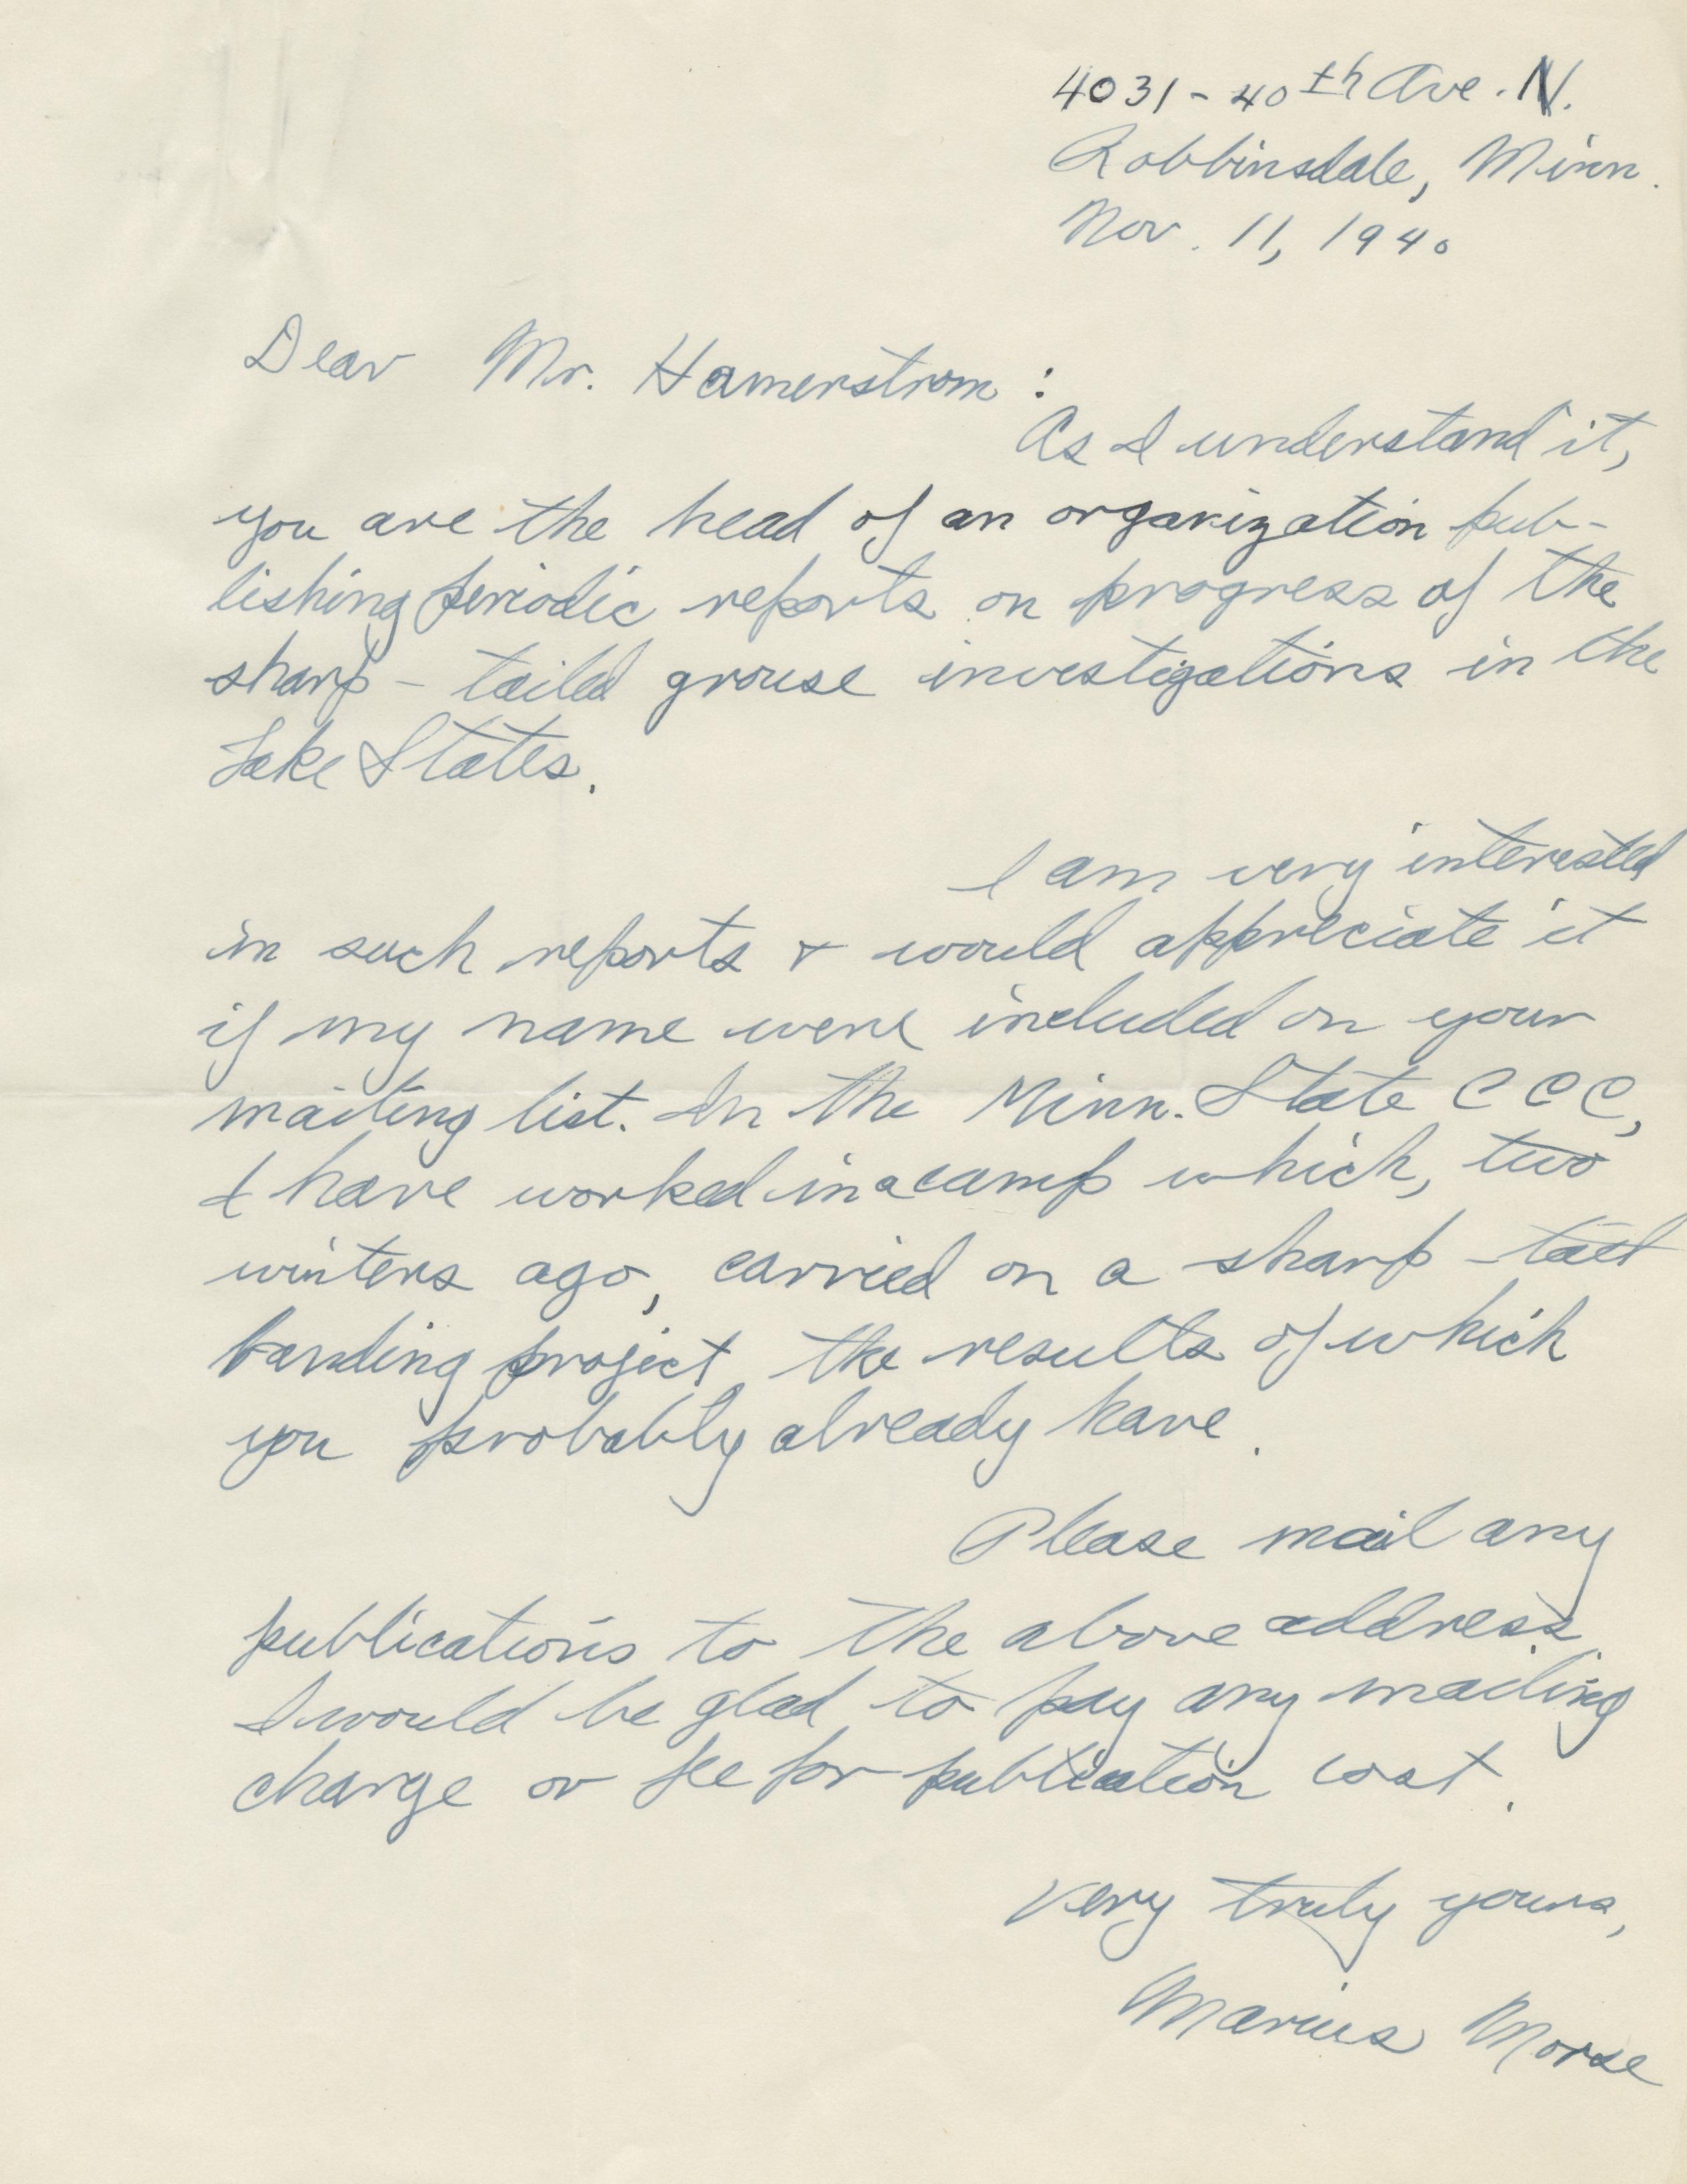 4031 - 40th Ave. N.
Robbinsdale, Minn.
Nov. 11, 1940
Dear Mr. Hamerstrom:
As I understand it,
you are the head of an organization pub-
lishing periodic reports on progress of the
sharp-tailed grouse investigations in the
Lake States.
I am very interested
in such reports & would appreciate it
if my name were included on your
mailing list. In the Minn. State CCC,
I have worked in a camp which, two
winters ago, carried on a sharp-tail
banding project the results of which
you probably already have.
Please mail any
publications to the above address.
I would be glad to pay any mailing
charge or fee for publication cost.
Very truly yours,
Marius Morse